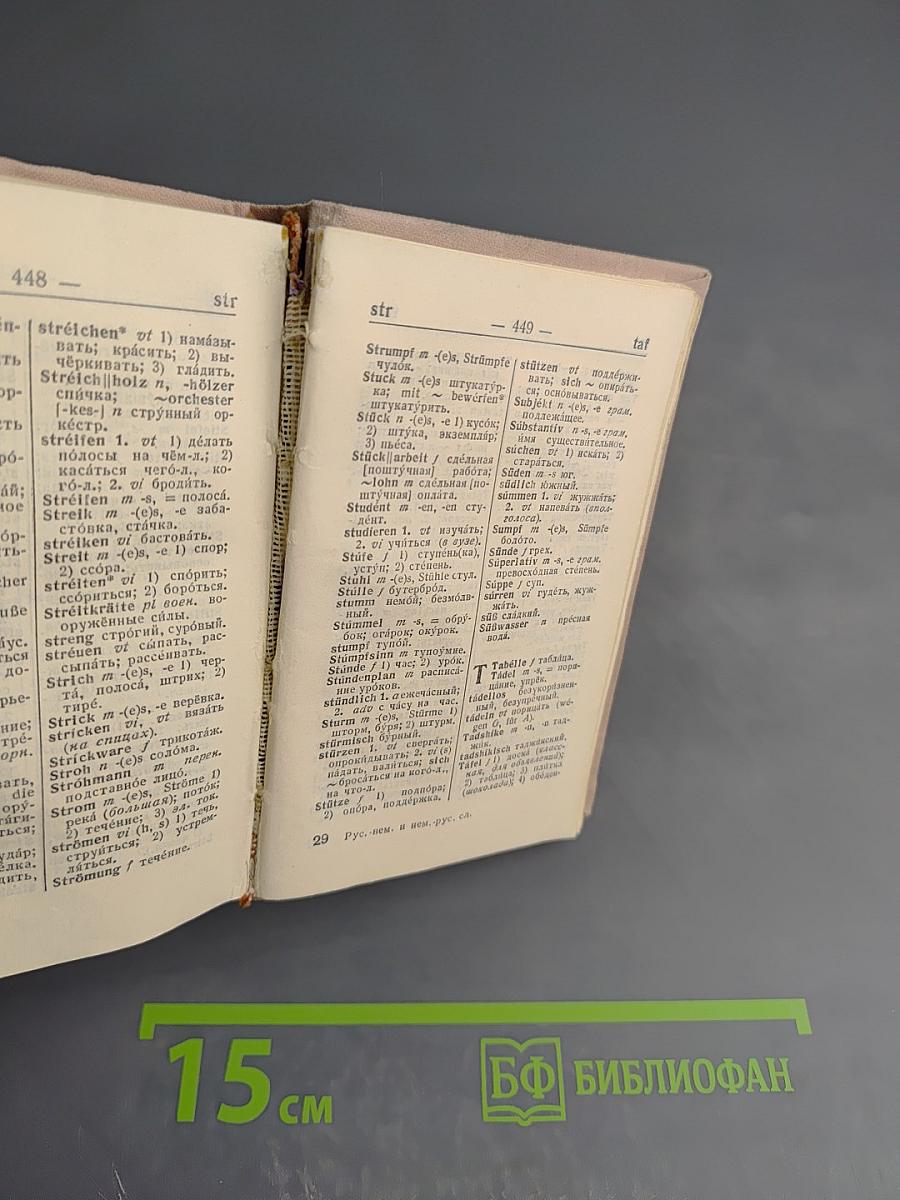 448 —
str
стре́ichen* vt 1) нама́зы-
вать; кра́сить; 2) вы-
чёркивать; 3) гла́дить.
Stréich||holz n, -hölzer
спи́чка; ~orchester
[-kes-] n стру́нный ор-
ке́стр.
stréifen 1. vt 1) де́лать
по́лосы на чём-л.; 2)
каса́ться чего́-л., ко-
го́-л.; 2. vi броди́ть.
Stréifen m -s, = полоса́.
Streik m -(e)s, -e заба-
сто́вка, ста́чка.
stréiken vi бастова́ть.
Streit m -(e)s, -e 1) спор;
2) ссо́ра.
stréiten* vi 1) спо́рить;
ссо́риться; 2) боро́ться.
Stréitkräfte pl воен. во-
оружённые си́лы.
streng стро́гий, суро́вый.
stréuen vt сы́пать, рас-
сыпа́ть; рассе́ивать.
Strich m -(e)s, -e 1) чер-
та́, полоса́, штрих; 2)
тире́.
Strick m -(e)s, -e верёвка.
stricken vi, vt вяза́ть
(на спицах).
Stríckware f трикота́ж.
Stroh n -(e)s соло́ма.
Stróhmann m перен.
подставно́е лицо́.
Strom m -(e)s, Ströme 1)
река́ (большая); пото́к;
2) тече́ние; 3) эл. ток.
strömen vi (h, s) 1) течь,
струи́ться; 2) устрем-
ля́ться.
Strömung f тече́ние.
str
— 449 —
taf
Strumpf m -(e)s, Strümpfe
чуло́к.
Stuck m -(e)s штукату́р-
ка; mit ~ bewérfen*
штукату́рить.
Stück n -(e)s, -e 1) кусо́к;
2) шту́ка, экземпля́р;
3) пье́са.
Stück||arbeit f сде́льная
[пошту́чная] рабо́та;
~lohn m сде́льная [по-
шту́чная] опла́та.
Studént m -en, -en сту-
де́нт.
studíeren 1. vt изуча́ть;
2. vi учи́ться (в вузе).
Stúfe f 1) ступе́нь(ка),
усту́п; 2) сте́пень.
Stuhl m -(e)s, Stühle стул.
Stúlle f бутербро́д.
stumm немо́й; безмо́лв-
ный.
Stúmmel m -s, = обру́-
бок; ога́рок; оку́рок.
stumpf тупо́й.
Stúmpfsinn m тупоу́мие.
Stúnde f 1) час; 2) уро́к.
Stúndenplan m расписа́-
ние уро́ков.
stündlich 1. a ежеча́сный;
2. adv с ча́су на час.
Sturm m -(e)s, Stürme 1)
шторм, бу́ря; 2) штурм.
stürmisch бу́рный.
stürzen 1. vt сверга́ть;
опроки́дывать; 2. vi (s)
па́дать, вали́ться; sich
~ броса́ться на кого́-л.,
на что-л.
Stütze f 1) подпо́ра;
2) опо́ра, подде́ржка.
stützen vt подде́ржи-
вать; sich ~ опира́ть-
ся; осно́вываться.
Subjékt n -(e)s, -e грам.
подлежа́щее.
Súbstantiv n -s, -e грам.
и́мя существи́тельное.
súchen vt 1) иска́ть; 2)
стара́ться.
Süden m -s юг.
südlich ю́жный.
súmmen 1. vi жужжа́ть;
2. vt напева́ть (впол-
голоса).
Sumpf m -(e)s, Sümpfe
боло́то.
Sünde f грех.
Súperlativ m -s, -e грам.
превосхо́дная сте́пень.
Súppe f суп.
súrren vi гуде́ть, жуж-
жа́ть.
süß сла́дкий.
Süßwasser n пре́сная
вода́.
T
Tabélle f табли́ца.
Tádel m -s, = пори-
ца́ние, упрёк.
tádellos безукори́знен-
ный, безупре́чный.
tádeln vt порица́ть (wé-
gen G, für A).
Tadshíke m -n, -n тад-
жи́к.
tadshíkisch таджи́кский.
Táfel f 1) доска́ (класс-
ная, для объявлений);
2) табли́ца; 3) пли́тка
(шоколада); 4) обе́ден-
29 Рус.-нем. и нем.-рус. сл.
15 см
БФ БИБЛИОФАН